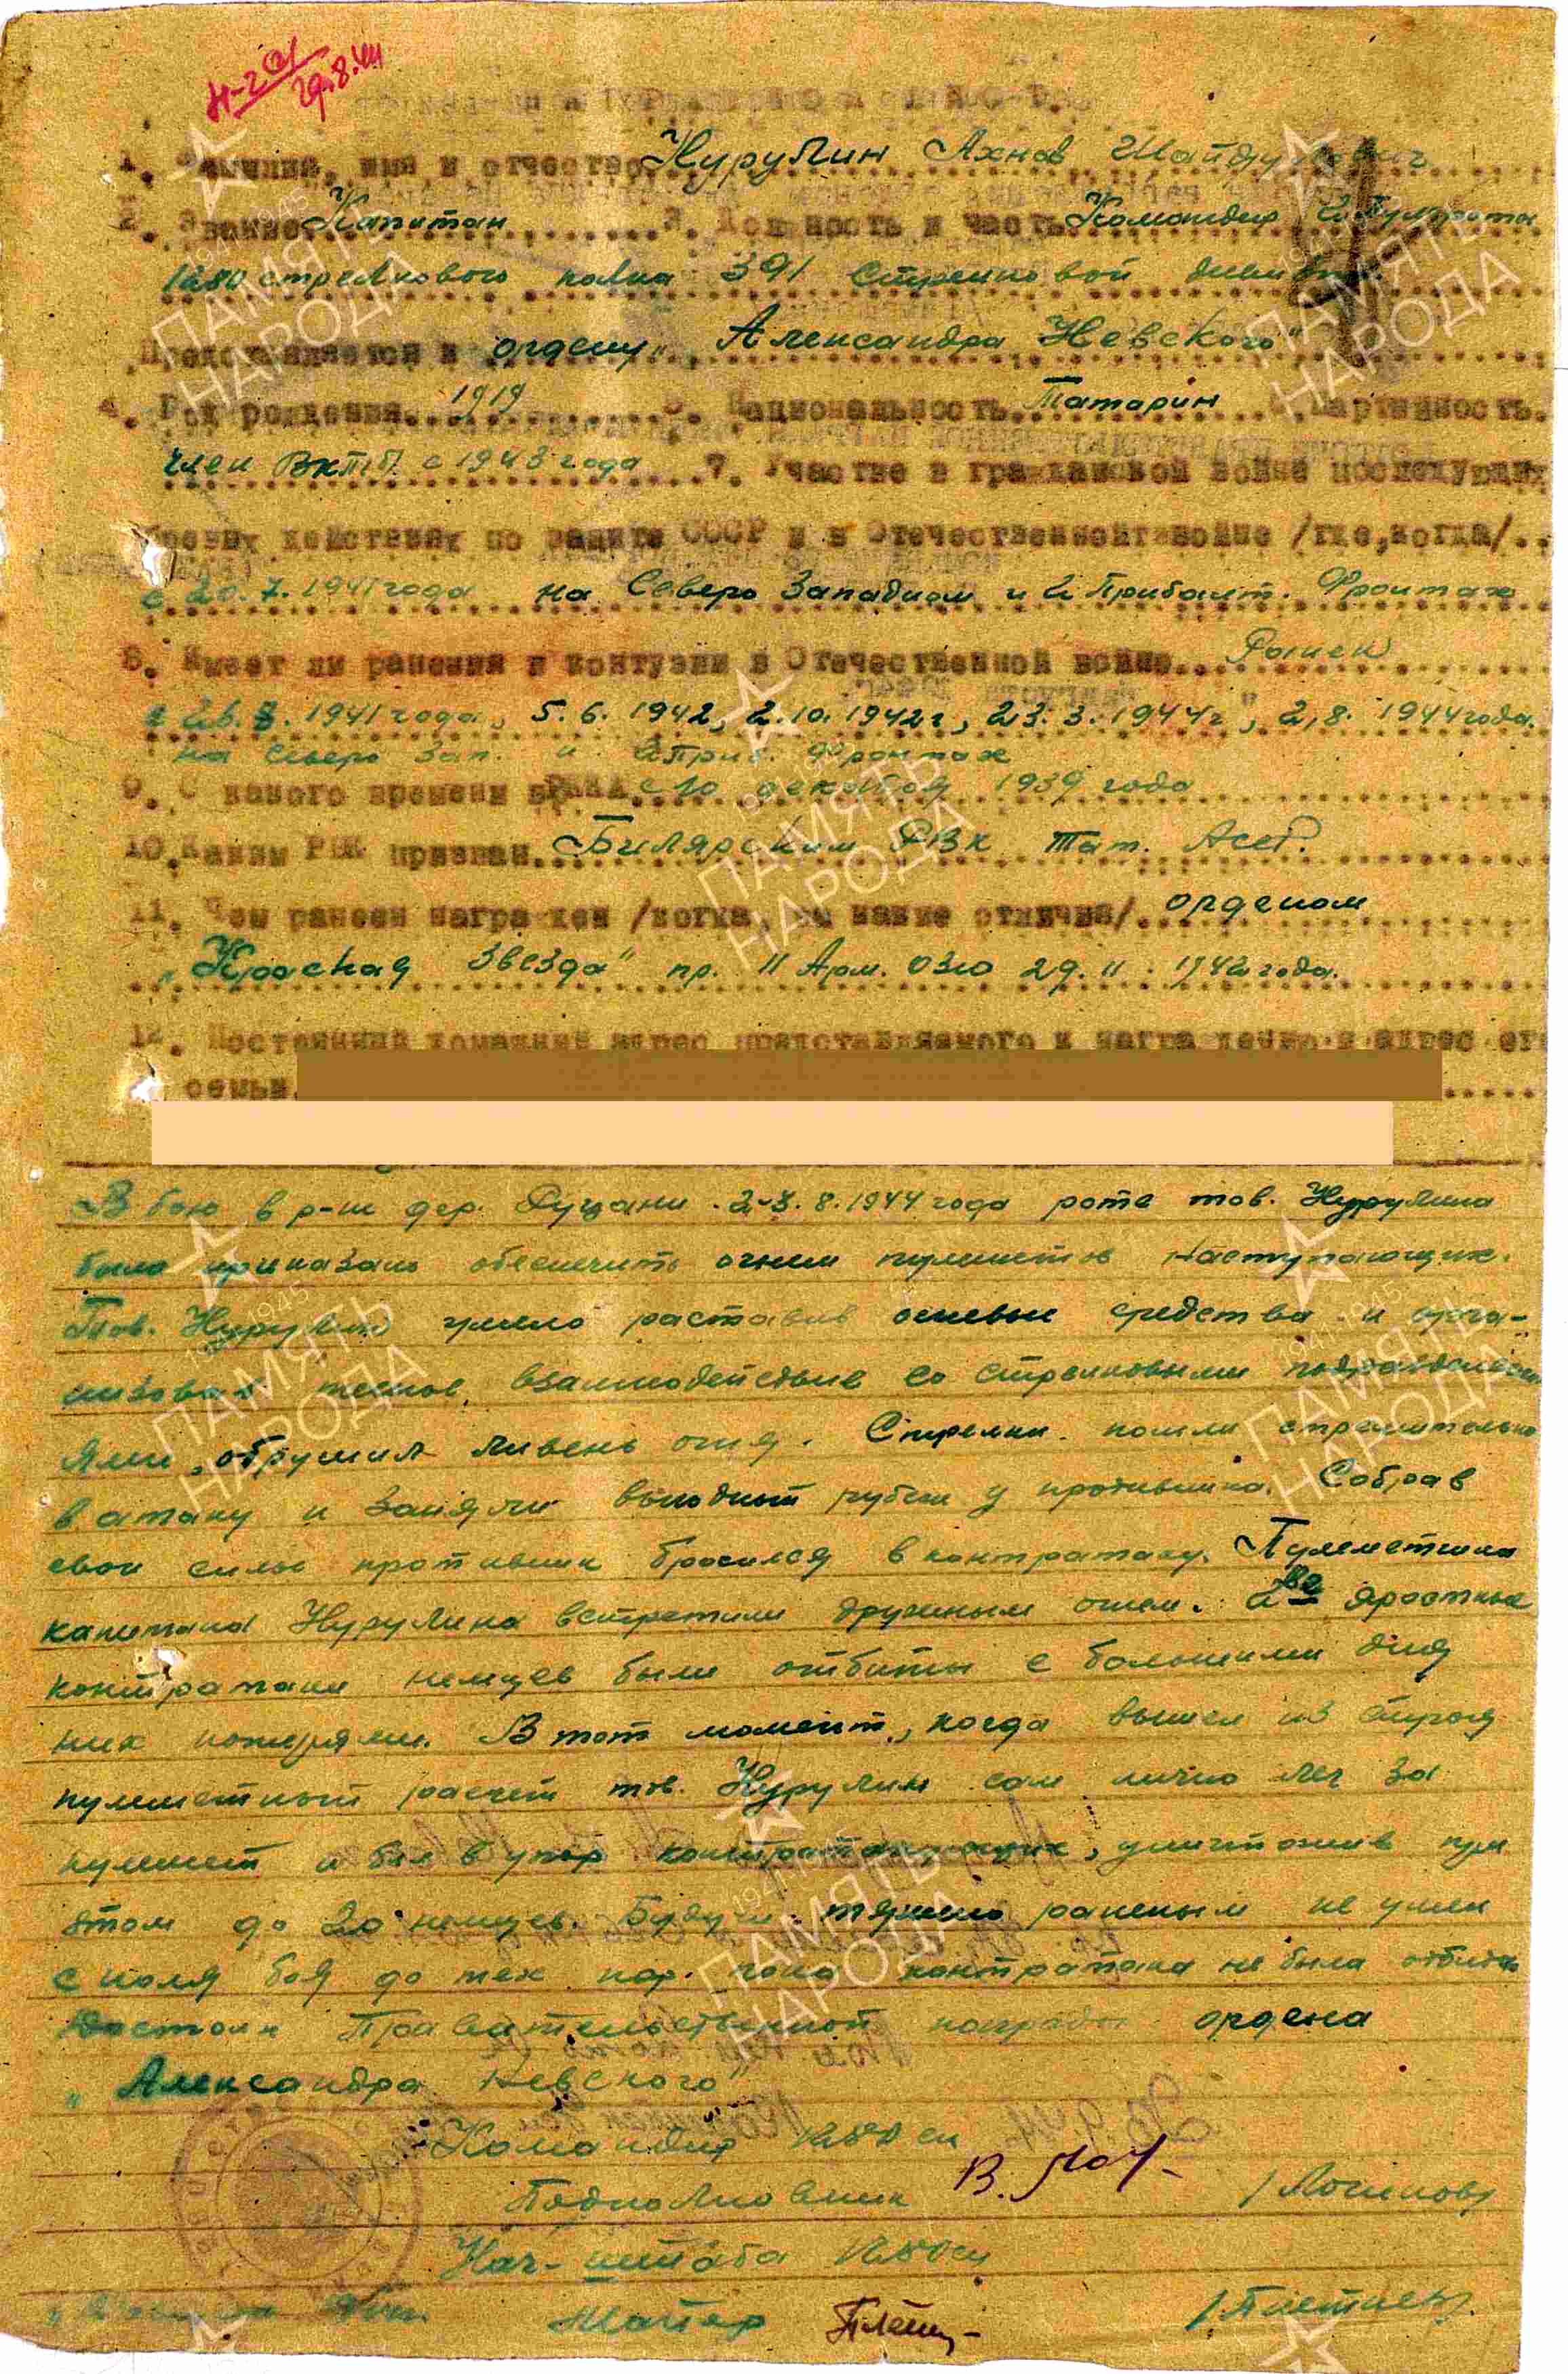 Н-2
29.8.44
1. Фамилия, имя и отчество Нурулин Ахнав
2. Звание Капитан 3. Должность и часть Командир 2 пульрота
1280 стрелкового полка 391 Стрелковой дивизии
Представляется к ордену „Александра Невского"
4. Год рождения 1919 5. Национальность Татарин 6. Партийность
член ВКП(б) с 1943 года 7. Участие в гражданской войне последующих
боевых действиях по защите СССР и в Отечественной войне /где, когда/
с 20.7.1941 года на Северо Западном и 2 Прибалт. Фронтах
8. Имеет ли ранения и контузии в Отечественной войне Ранен
1941 года, 5.6.1942, 2.10.1942 г, 23.3.1944 г, 2.8.1944 года.
на Северо Зап. и 2 Приб. Фронтах
9. С какого времени в РККА с 10 декабря 1939 года
10. Каким РВК призван Билярским РВК Тат. АССР.
11. Чем ранее награжден /когда, за какие отличия/ орденом
„Красная Звезда" пр. 11 Арм. 0310 29.11.1942 года.
12. Постоянный домашний адрес представляемого к награждению и адрес его
семьи
В бою в р-не дер. 2-3.8.1944 года роте тов. Нурулина
было приказано обеспечить огнем пулеметов наступающих.
Тов. Нурулин умело расставив огневые средства и орга-
низовав тесное взаимодействие со стрелковыми подразделени
ями, обрушил ливень огня. Стрелки пошли стремительно
в атаку и заняли выгодный рубеж у противника. Собрав
свои силы противник бросился в контратаку. Пулеметчики
капитана Нурулина встретили дружным огнем. 2ве яростные
контратаки немцев были отбиты с большими для
них потерями. В тот момент, когда вышел из строя
пулеметный расчет тов. Нурулин сам лично лег за
пулемет и бил в упор контратакующих, уничтожив при
этом до 20 немцев. Будучи тяжело раненым не ушел
с поля боя до тех пор пока контратака не была отбита
Достоин Правительственной награды ордена
„Александра Невского"
Командир 1280 сп
Подполковник В.
Нач-штаба 1280 сп
Майор
ПАМЯТЬ НАРОДА
1941-1945